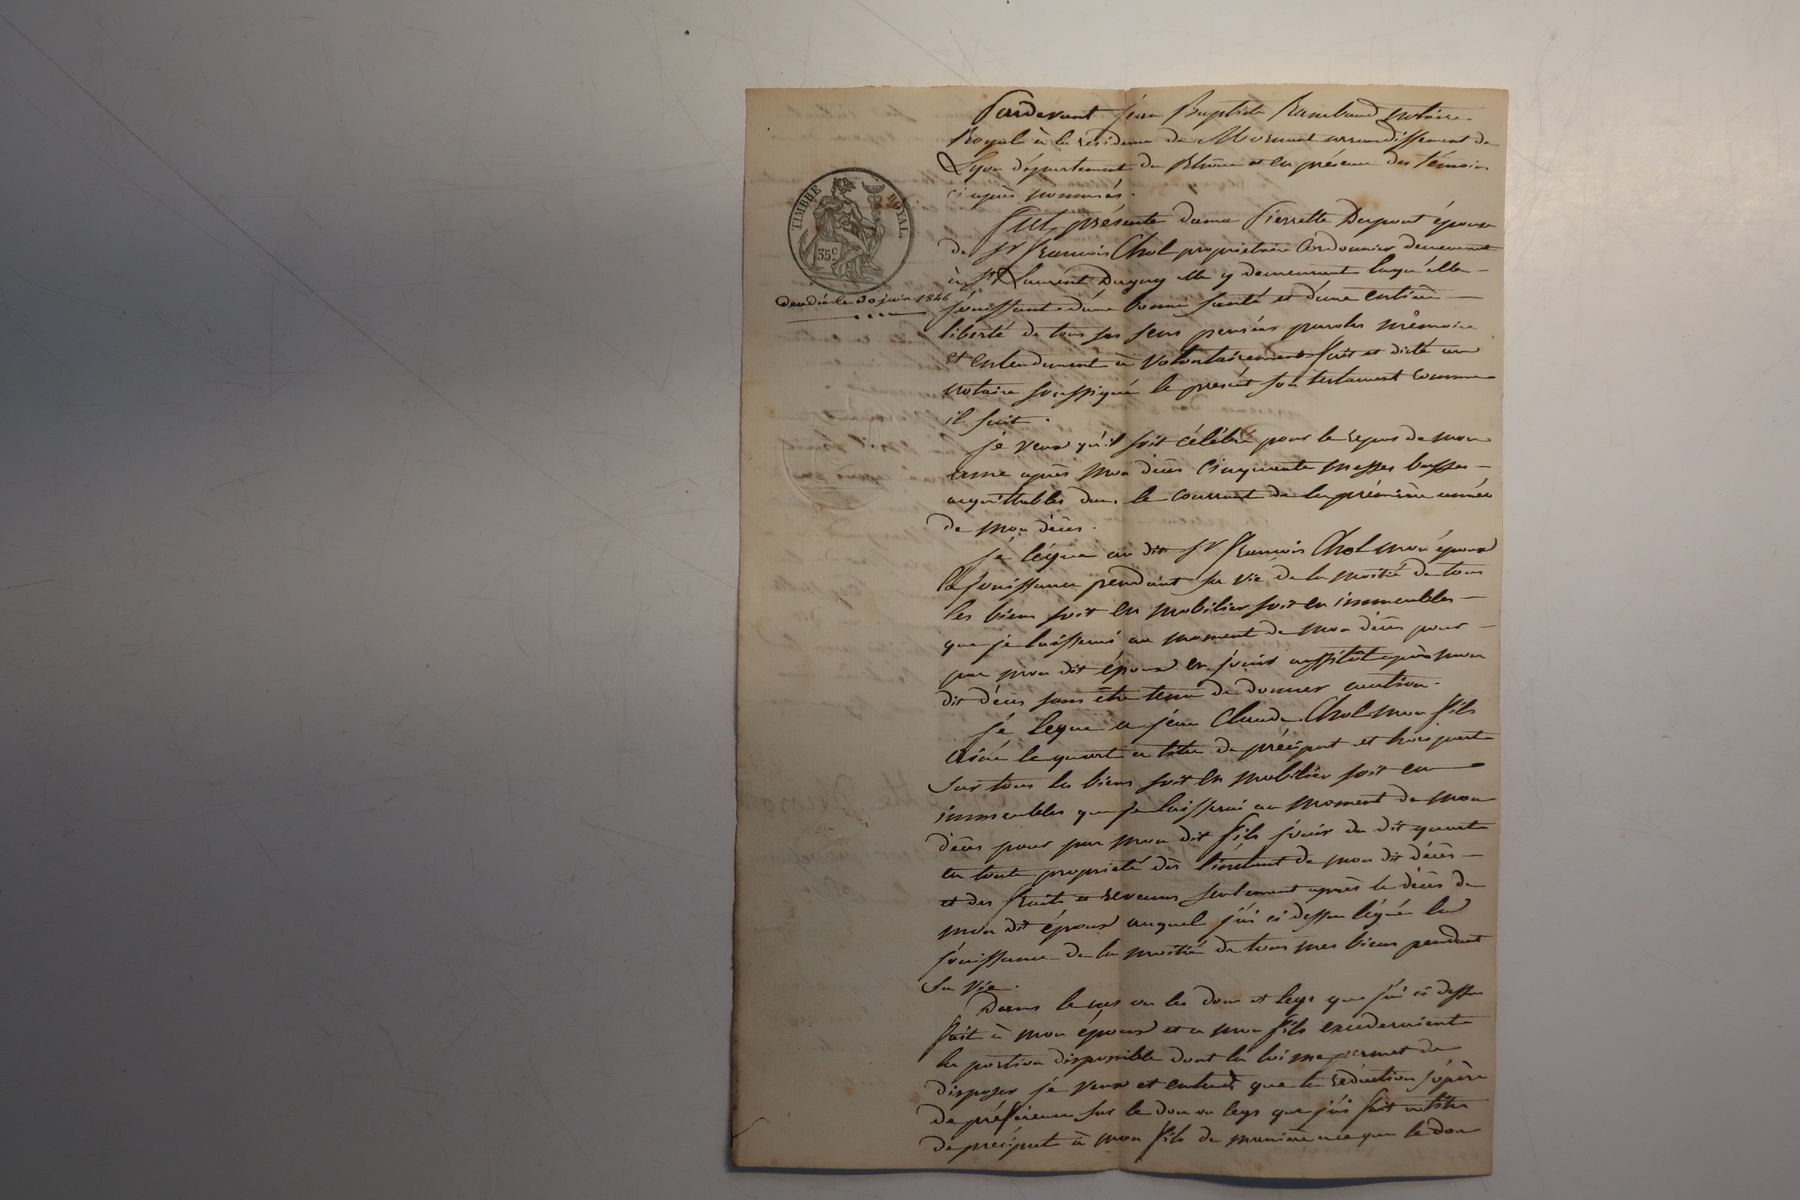 Pardevant Jean Baptiste Rambaud notaire
Royal à la résidence de Mornant arrondissement de
Lyon département du Rhône et en présence des témoins
ci après nommés.
TIMBRE ROYAL
35c
Décédée le 30 juin 1846
Fut présente dame Pierrette Dupont épouse
de Sr François Chol propriétaire Cordonnier demeurant
à St Laurent Dagny elle y demeurant laquelle
jouissant d'une bonne santé et d'une entière
liberté de tous ses sens pensées paroles mémoire
et entendement à volontairement fait et dicté au
notaire soussigné le présent son testament comme
il suit.
je veux qu'il soit célébré pour le repos de mon
ame après mon décès cinquante messes basses
acquittables dans le courrant de la première année
de mon décès.
je légue au dit Sr François Chol mon époux
la jouissance pendant sa vie de la moitié de tous
les biens soit en mobilier soit en immeubles
que je laisserai au moment de mon décès pour
par mon dit époux en jouir aussitôt après mon
dit décès sans être tenu de donner caution.
je legue a jean Claude Chol mon fils
ainé le quart a titre de préciput et hors part
sur tous les biens soit en mobilier soit en
immeubles que je laisserai au moment de mon
décès pour par mon dit fils jouir du dit quart
en toute propriété dès l'instant de mon dit décès
et des fruits et revenus seulement après le décès de
mon dit époux auquel j'ai ci dessus légué la
jouissance de la moitié de tous mes biens pendant
sa vie.
Dans le cas ou les dons et legs que j'ai ci dessus
fait à mon époux et a mon fils excederaient
la portion disponible dont la loi me permet de
disposer je veux et entends que la réduction s'opère
de préférence sur le don ou legs que j'ai fait a titre
de préciput à mon fils de manière a ce que le don